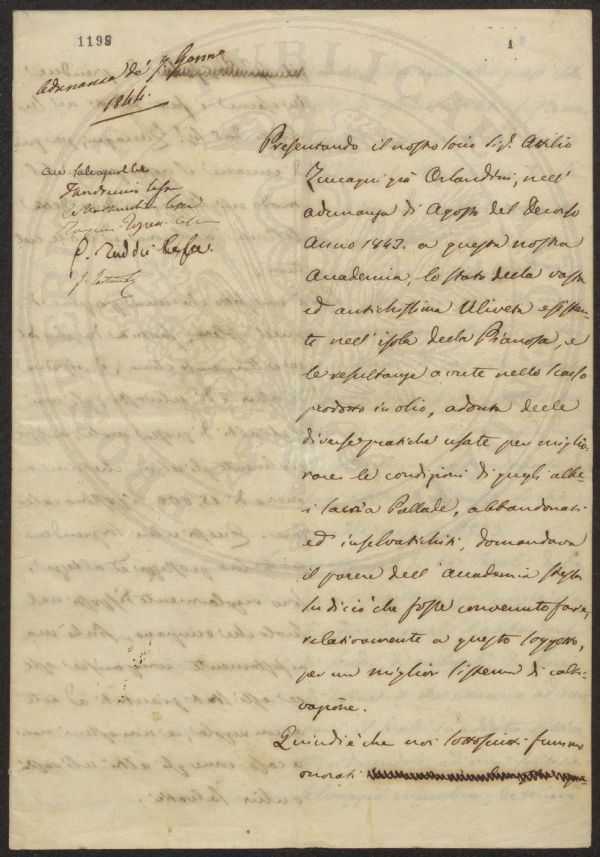 1198
1
Adunanza de' 7. Genn.
1844.
Presentando il nostro socio Sig.r Attilio
Zuccagni già Orlandini, nell'
adunanza di Agosto del decorso
Anno 1843. a questa nostra
Accademia, lo stato della vasta
ed antichissima Uliveta esisten-
te nell'isola della Pianosa, e
le resultanze avute nello scarso
prodotto in olio, ad onta delle
diverse pratiche usate per miglio-
rare le condizioni di quegli albe-
ri sacri a Pallade, abbandonati
ed inselvatichiti, domandava
il parere dell'Accademia stessa
su di ciò che fosse convenuto fare,
relativamente a questo soggetto,
per un miglior sistema di colti-
vazione.
Quindi è che noi sottoscritti fummo
onorati